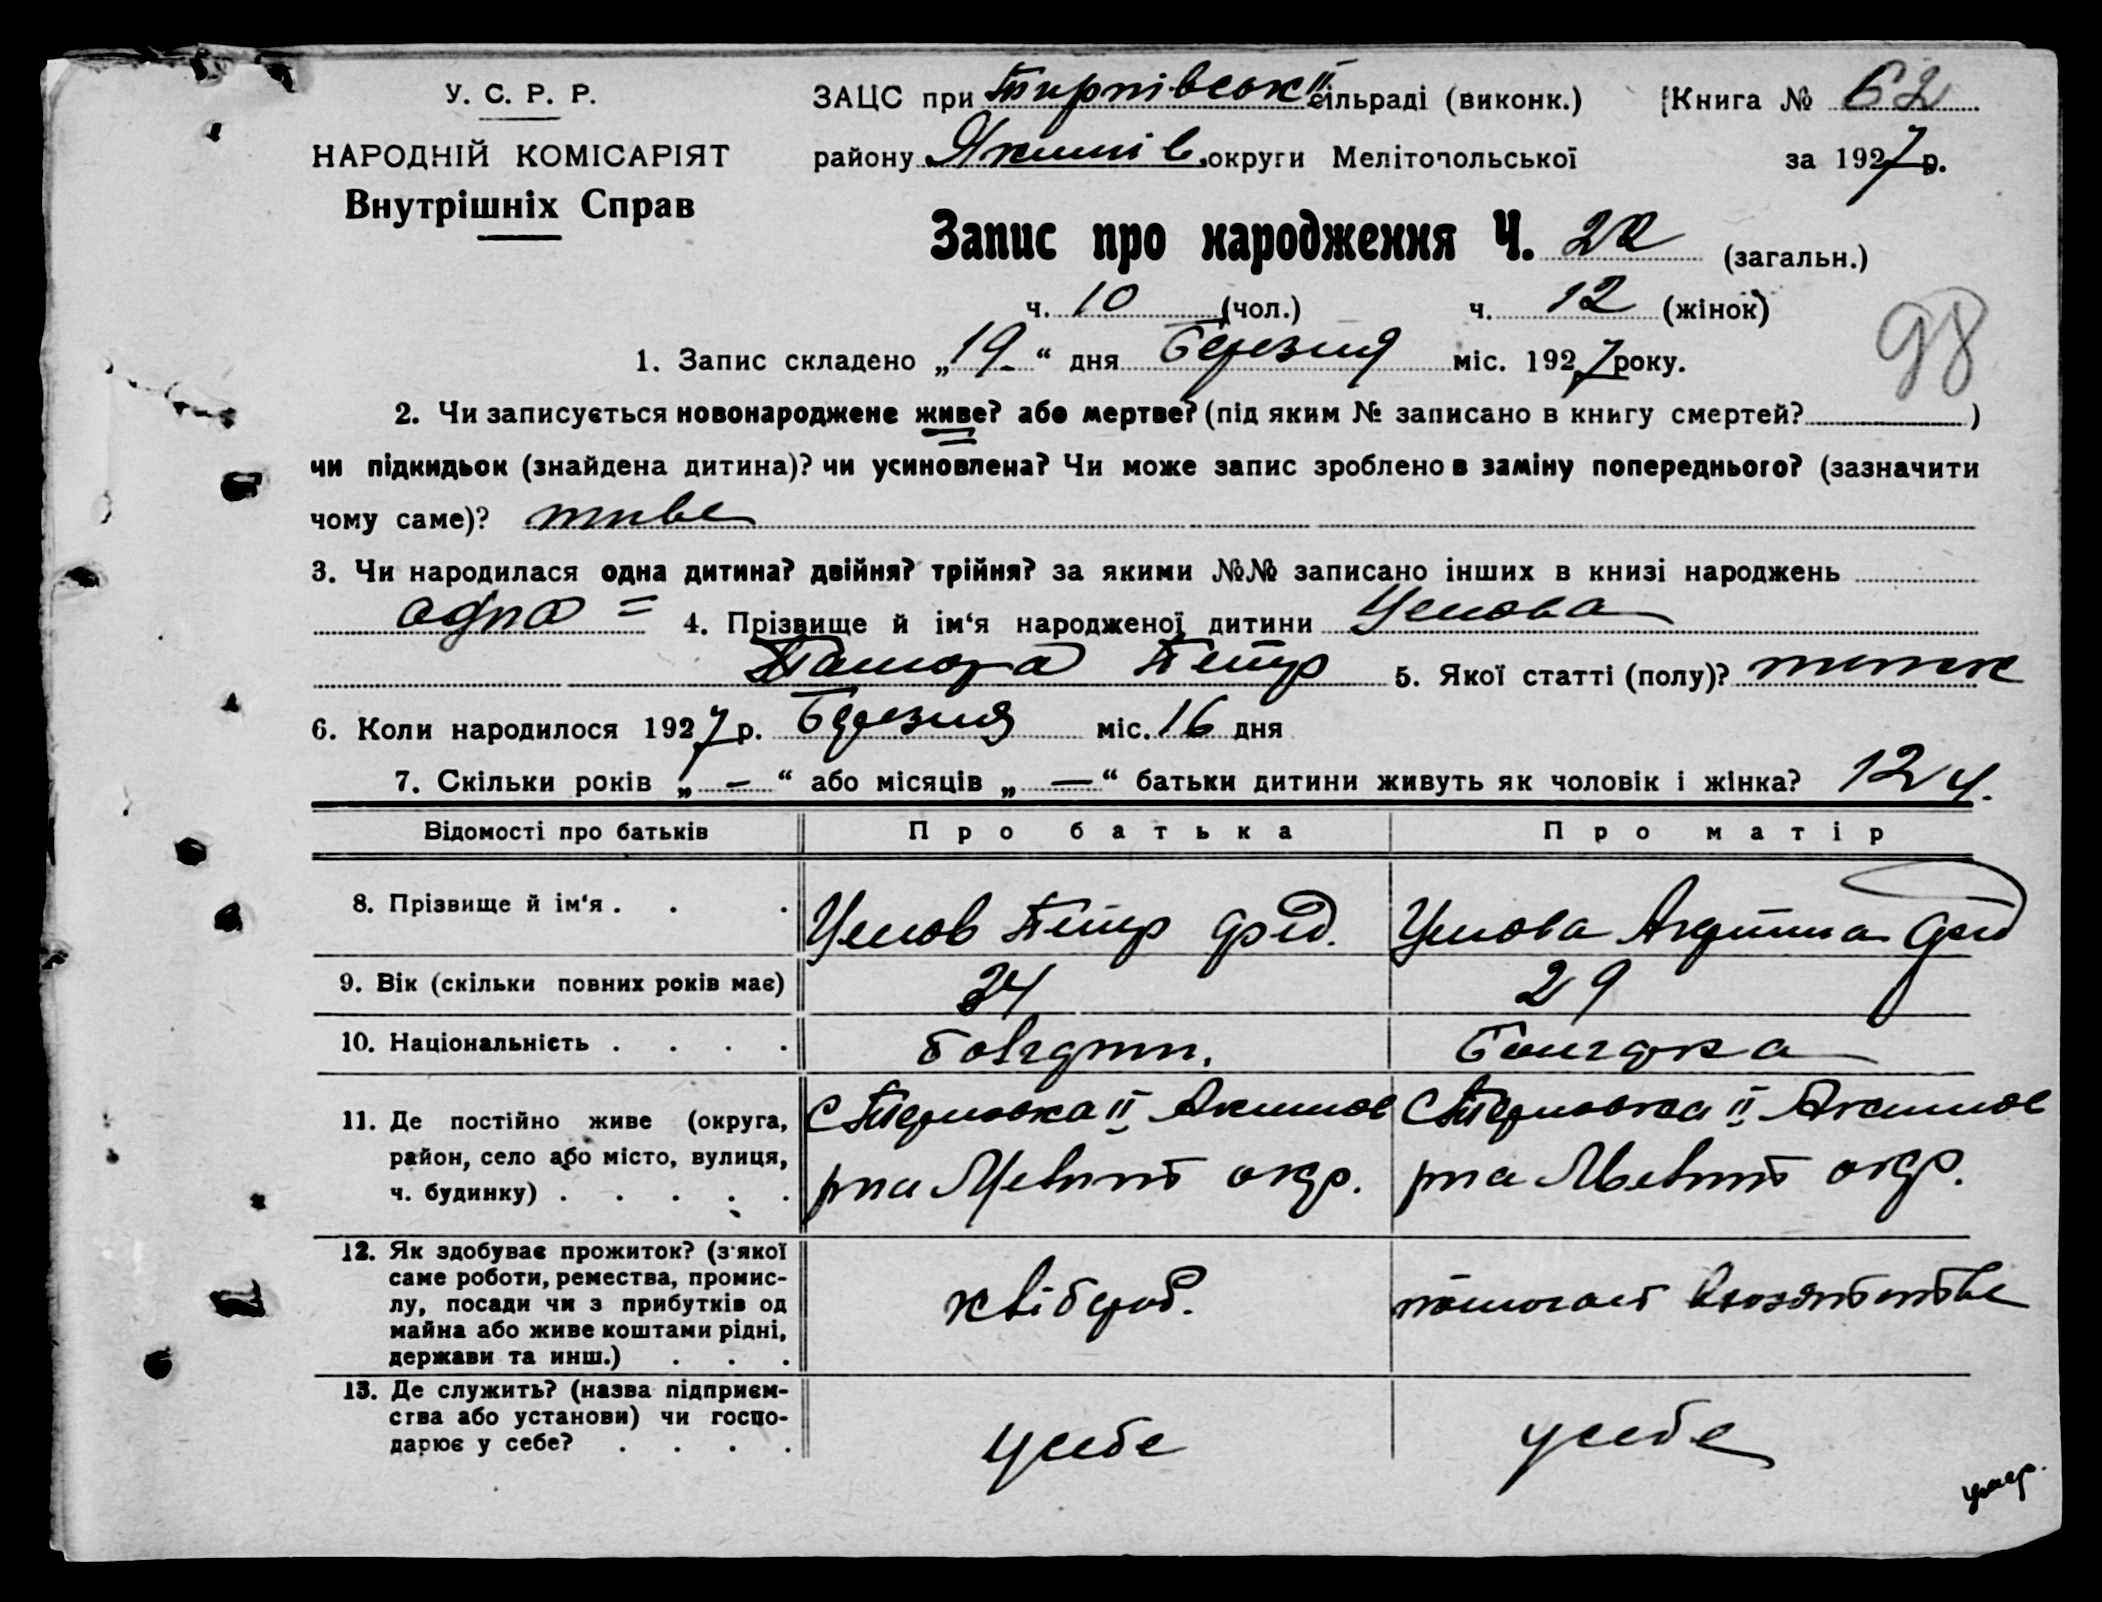 У. С. Р. Р.
НАРОДНІЙ КОМІСАРІЯТ
Внутрішніх Справ
ЗАЦС при Тирнівськ II сільраді (виконк.) Книга № 62
району Якимів. округи Мелітопольської за 1927 р.
Запис про народження Ч. 22 (загальн.)
ч. 10 (чол.) ч. 12 (жінок)
98
1. Запис складено „19“ дня Березня міс. 1927 року.
2. Чи записується новонароджене живе? або мертве? (під яким № записано в книгу смертей? )
чи підкидьок (знайдена дитина)? чи усиновлена? Чи може запис зроблено в заміну попереднього? (зазначити
чому саме)? живе
3. Чи народилася одна дитина? двійня? трійня? за якими №№ записано інших в книзі народжень
одна = 4. Прізвище й ім‘я народженої дитини
Петр 5. Якої статті (полу)?
6. Коли народилося 1927 р. Березня міс. 16 дня
7. Скільки років „ — “ або місяців „ — “ батьки дитини живуть як чоловік і жінка? 12
Відомості про батьків Про батька Про матір
8. Прізвище й ім‘я . . . Петр
9. Вік (скільки повних років має) 34 29
10. Національність . . . . Болгарка
11. Де постійно живе (округа,
район, село або місто, вулиця,
ч. будинку) . . . . .
С Терновка II Акимов С Терновка II Акимов
р-на Меліт окр. р-на Меліт окр.
12. Як здобуває прожиток? (з якої
саме роботи, ремества, промис-
лу, посади чи з прибутків од
майна або живе коштами рідні,
держави та инш.) . . .
хлібороб. помогает
13. Де служить? (назва підприєм-
ства або установи) чи госпо-
дарює у себе? . . . .
у себе у себе
умер.